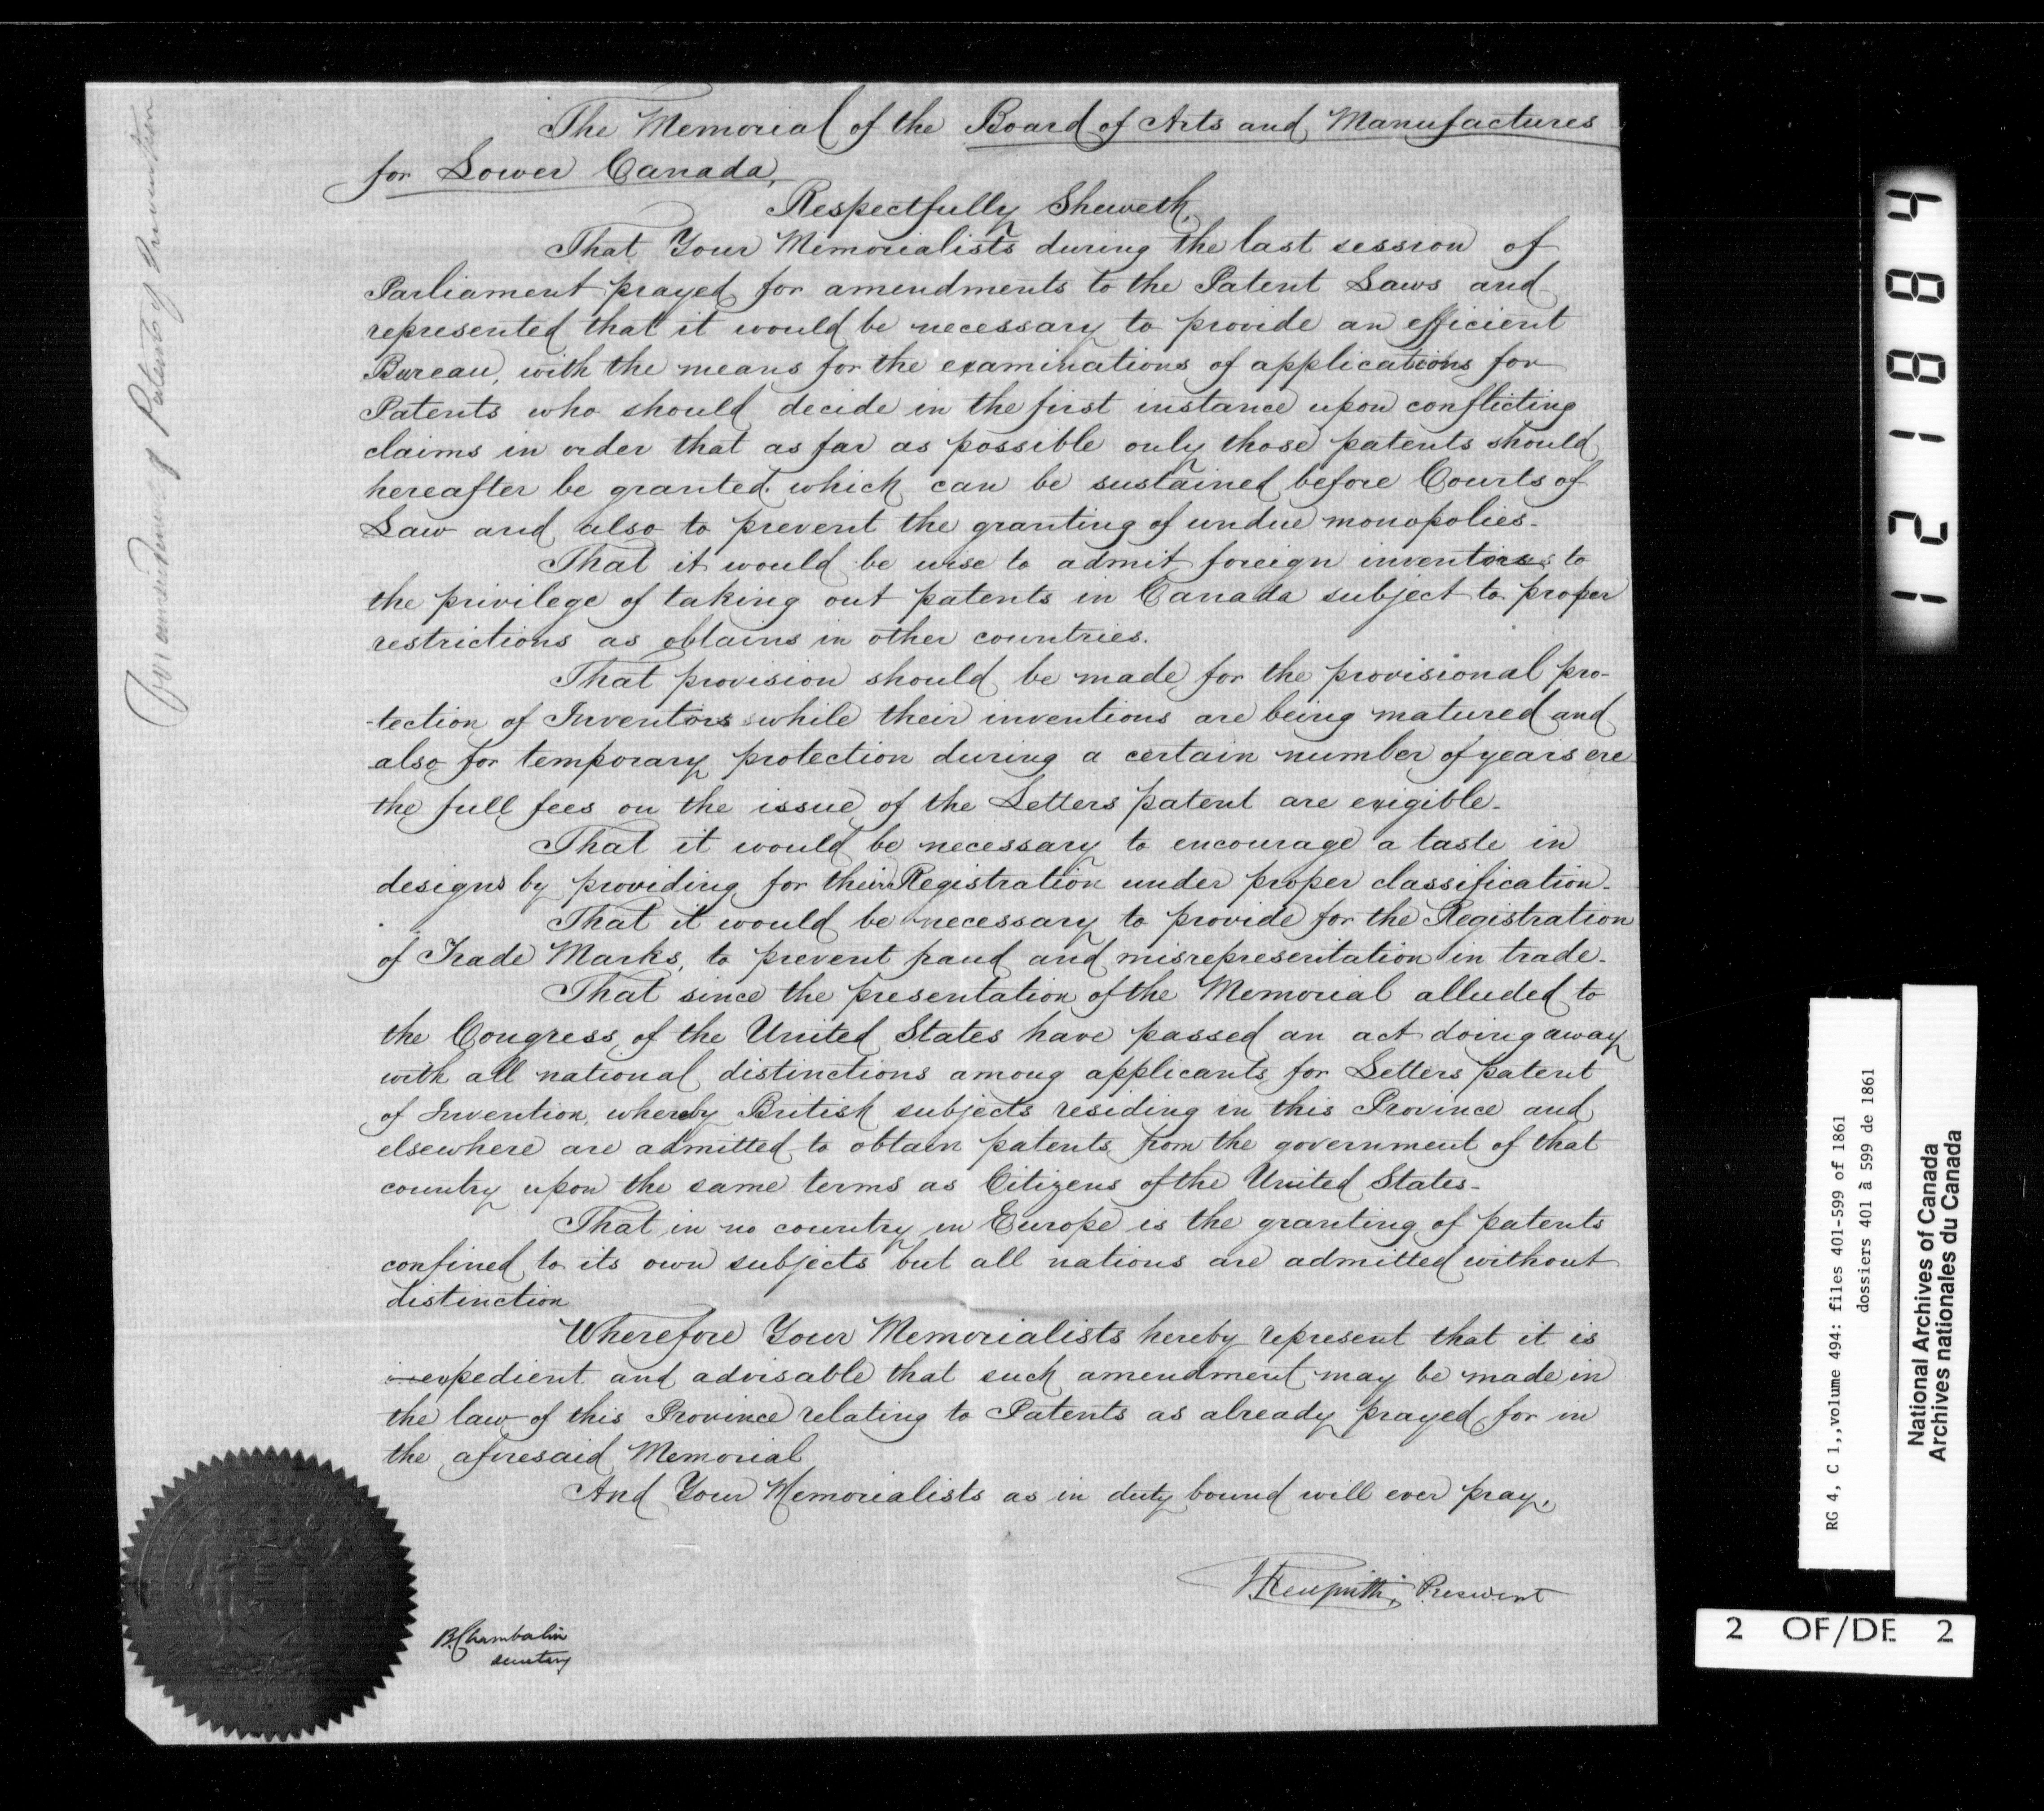 The Memorial of the Board of Arts and Manufactures
for Lower Canada,
Respectfully Sheweth,
That Your Memorialists during the last session of
Parliament prayed for amendments to the Patent Laws and
represented that it would be necessary to provide an efficient
Bureau, with the means for the examinations of applications for
Patents who should decide in the first instance upon conflicting
claims in order that as far as possible only those patents should
hereafter be granted which can be sustained before Courts of
Law and also to prevent the granting of undue monopolies.
That it would be wise to admit foreign inventors to
the privilege of taking out patents in Canada subject to proper
restrictions as obtains in other countries.
That provision should be made for the provisional pro-
-tection of Inventors while their inventions are being matured and
also for temporary protection during a certain number of years ere
the full fees on the issue of the Letters patent are exigible.
That it would be necessary to encourage a taste in
designs by providing for their Registration under proper classification.
That it would be necessary to provide for the Registration
of Trade Marks, to prevent fraud and misrepresentation in trade.
That since the presentation of the Memorial alluded to
the Congress of the United States have passed an act doing away
with all national distinctions among applicants for Letters patent
of Invention, whereby British subjects residing in this Province and
elsewhere are admitted to obtain patents from the government of that
country upon the same terms as Citizens of the United States.
That in no country in Europe is the granting of patents
confined to its own subjects but all nations are admitted without
distinction
Wherefore Your Memorialists hereby represent that it is
expedient and advisable that such amendment may be made in
the law of this Province relating to Patents as already prayed for in
the aforesaid Memorial
And Your Memorialists as in duty bound will ever pray.
President
B. Chamberlin
secretary
Patents of Invention
121884
RG 4, C 1,,volume 494: files 401-599 of 1861
dossiers 401 à 599 de 1861
National Archives of Canada
Archives nationales du Canada
2 OF/DE 2